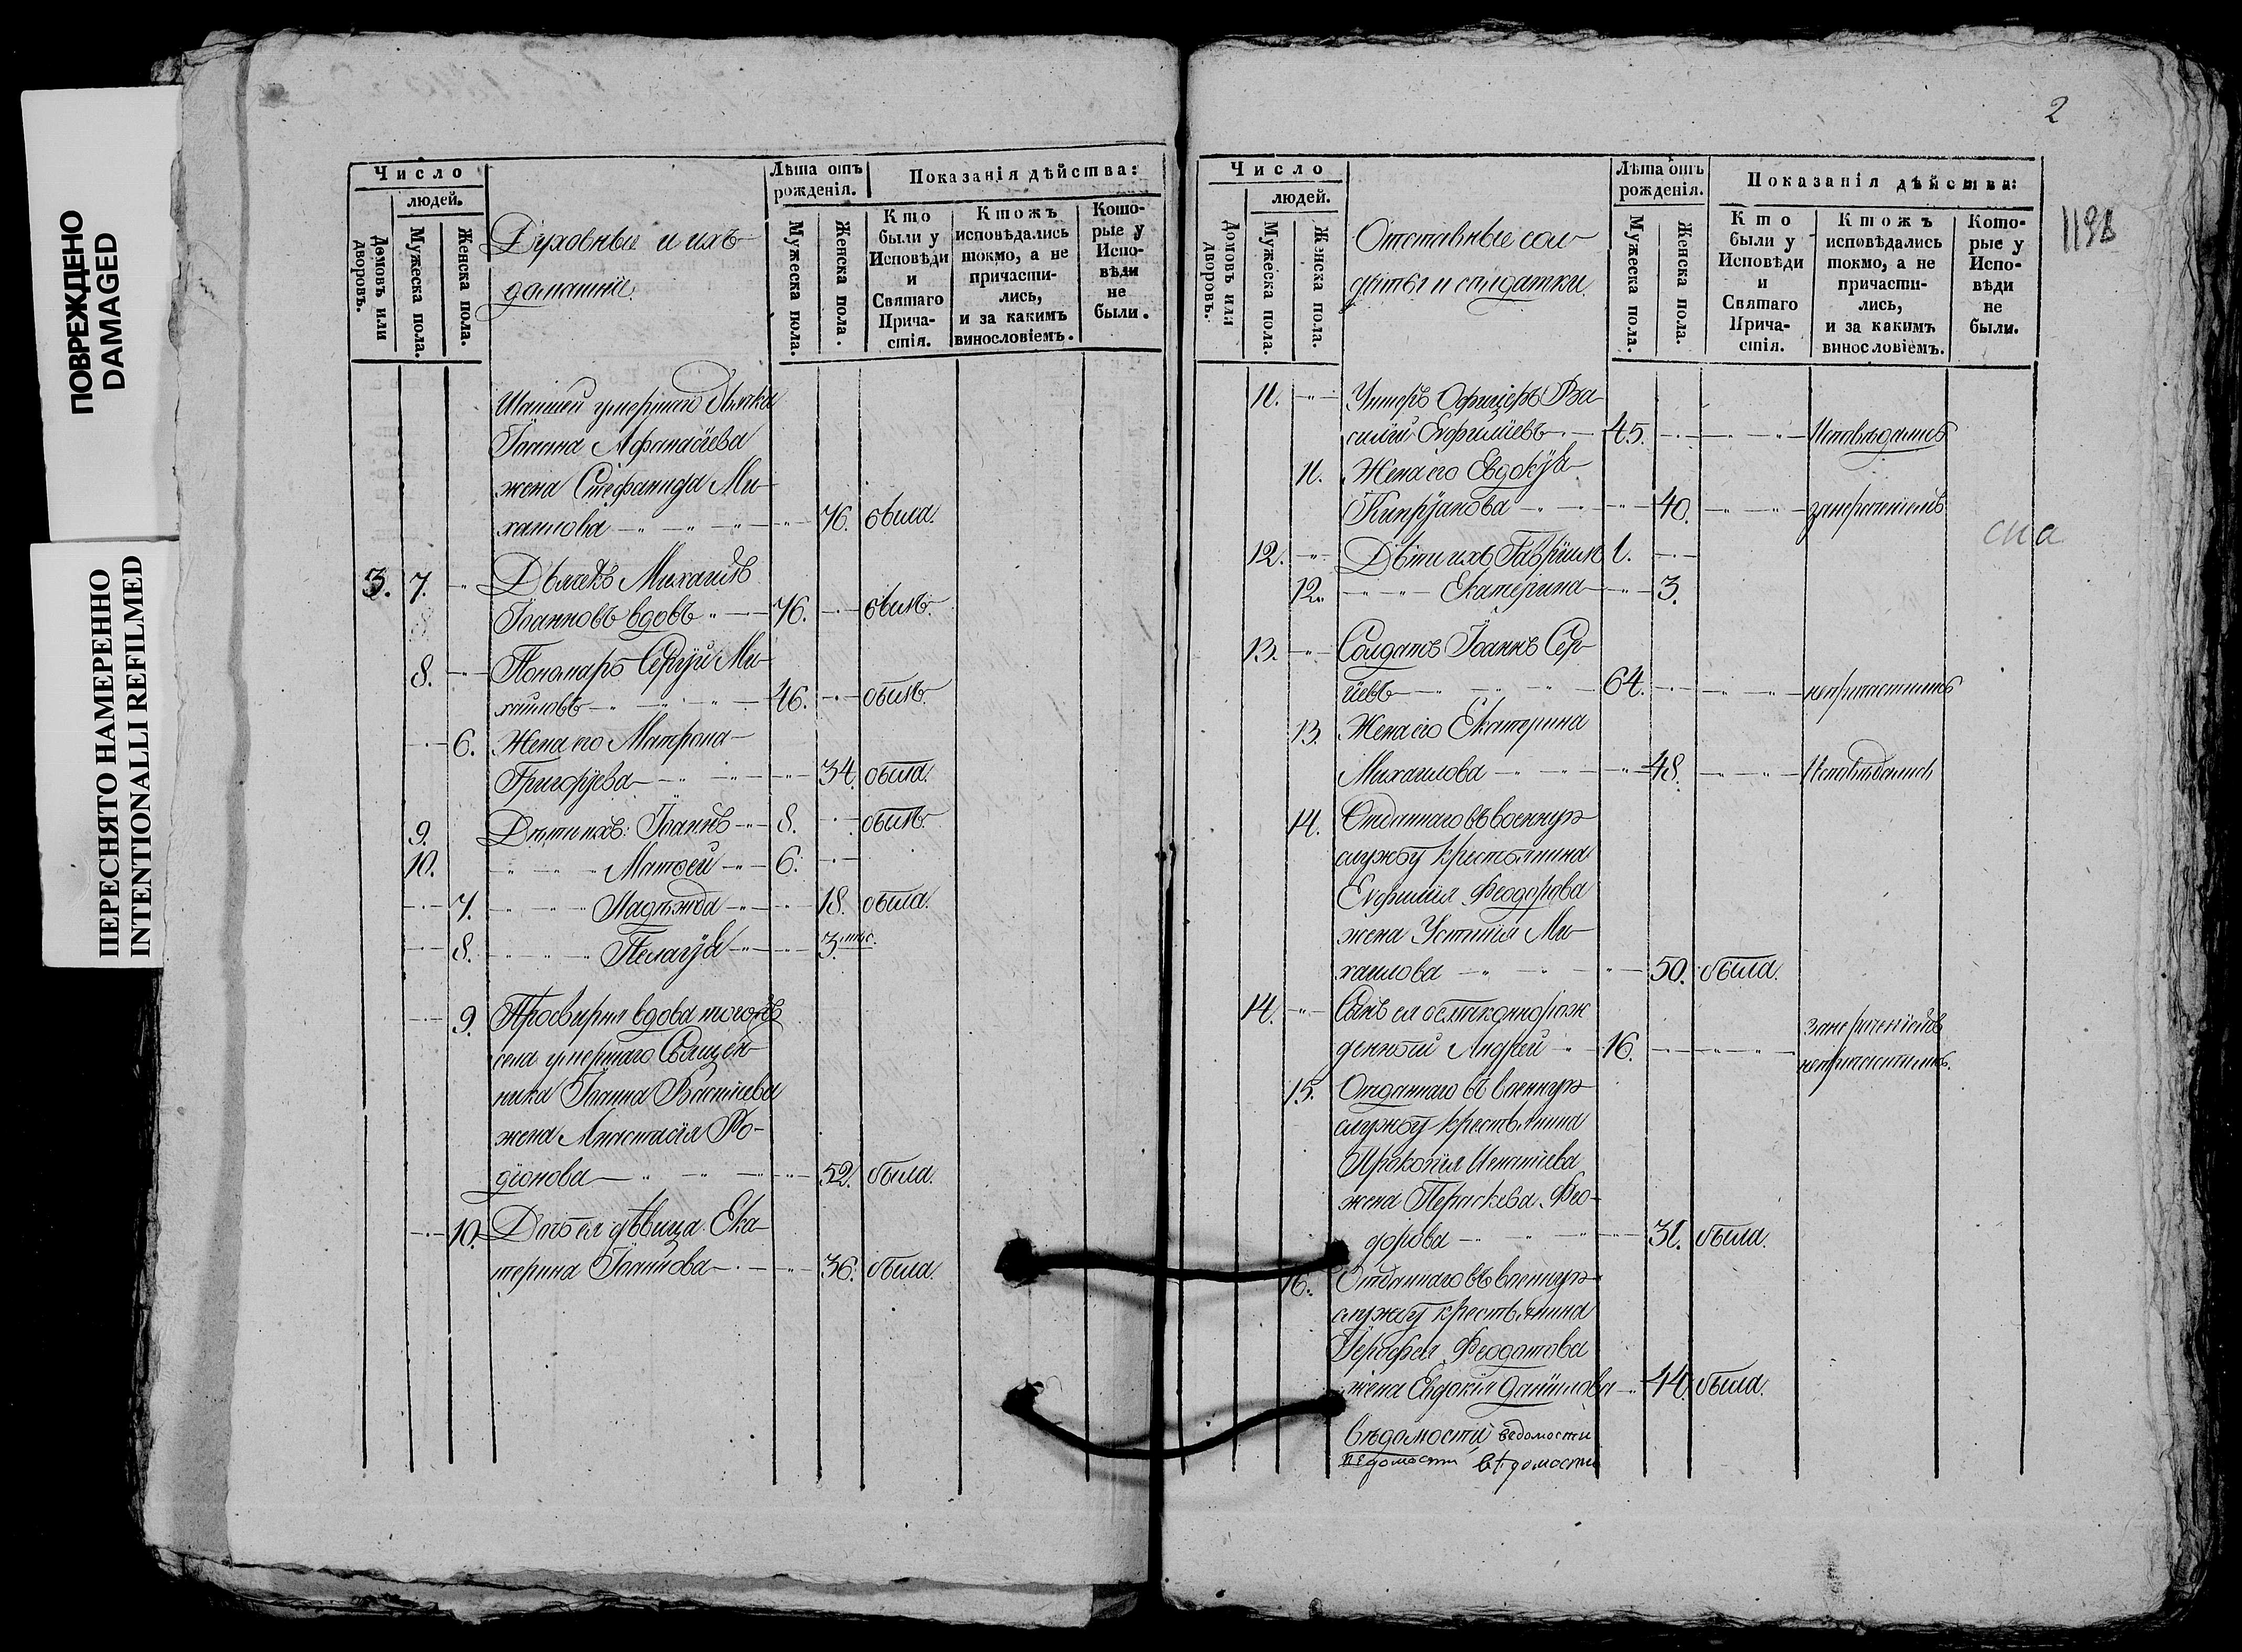 ПОВРЕЖДЕНО
DAMAGED
ПЕРЕСНЯТО НАМЕРЕННО
INTENTIONALLI REFILMED
Число
людей.
Домовъ или дворовъ.
Мужеска пола.
Женска пола.
Духовные и ихъ
домашніе.
Лѣта отъ рожденія.
Мужеска пола.
Женска пола.
Показанія дѣйства:
Кто были у Исповѣди и Святаго Причастія.
Ктожъ исповѣдались токмо, а не причастились, и за какимъ винословіемъ.
Которые у Исповѣди не были.
умершаго Дьячка
Іоанна Афанасіева
жена Стефанида Ми-
хаилова 76. была.
3. 7. Дьячекъ Михаилъ
Іоанновъ вдовъ 76. былъ.
8. Пономарь Сергій Ми-
хаиловъ 46. былъ.
6. Жена его Матрона
Григорьева 34. была.
9. Дѣти ихъ: Іоаннъ 8. былъ.
10. Матѳей 6.
7. Надежда 18. была.
8. Пелагія 3. мѣс.
9. Просвирня вдова тогожъ
села умершаго Священ-
ника Іоанна Васильева
жена Анастасія Ро-
діонова 52. была.
10. Дочь ея дѣвица Ека-
терина Іоаннова 36. была.
2
1198
Число
людей.
Домовъ или дворовъ.
Мужеска пола.
Женска пола.
Отставные сол-
даты и солдатки.
Лѣта отъ рожденія.
Мужеска пола.
Женска пола.
Показанія дѣйства:
Кто были у Исповѣди и Святаго Причастія.
Ктожъ исповѣдались токмо, а не причастились, и за какимъ винословіемъ.
Которые у Исповѣди не были.
11. Унтеръ Офицеръ Ва-
силій Евфиміевъ 45. Исповѣдались
11. Жена его Евдокія
Кипріянова 40. занераченіемъ
12. Дѣти ихъ Гавріилъ 1.
12. Екатерина 3.
13. Солдатъ Іоаннъ Сер-
гіевъ 64. непричастились
13. Жена его Екатерина
Михаилова 48. Исповѣдались
14. Отданнаго въ военную
службу крестьянина
Евфимія Феодорова
жена Устинія Ми-
хаилова 50. была.
14. Сынъ ея незаконнорож
денной Андрей 16. занераченіемъ
непричастились.
15. Отданнаго въ военную
службу крестьянина
Прокопія Игнатіева
жена Параскева Фео-
дорова 31. была.
16. Отданнаго въ военную
службу крестьянина
Іерофея Феодотова
жена Евдокія Даніилова 44. была.
вѣдомости ведомости
ведомости вѣдомости